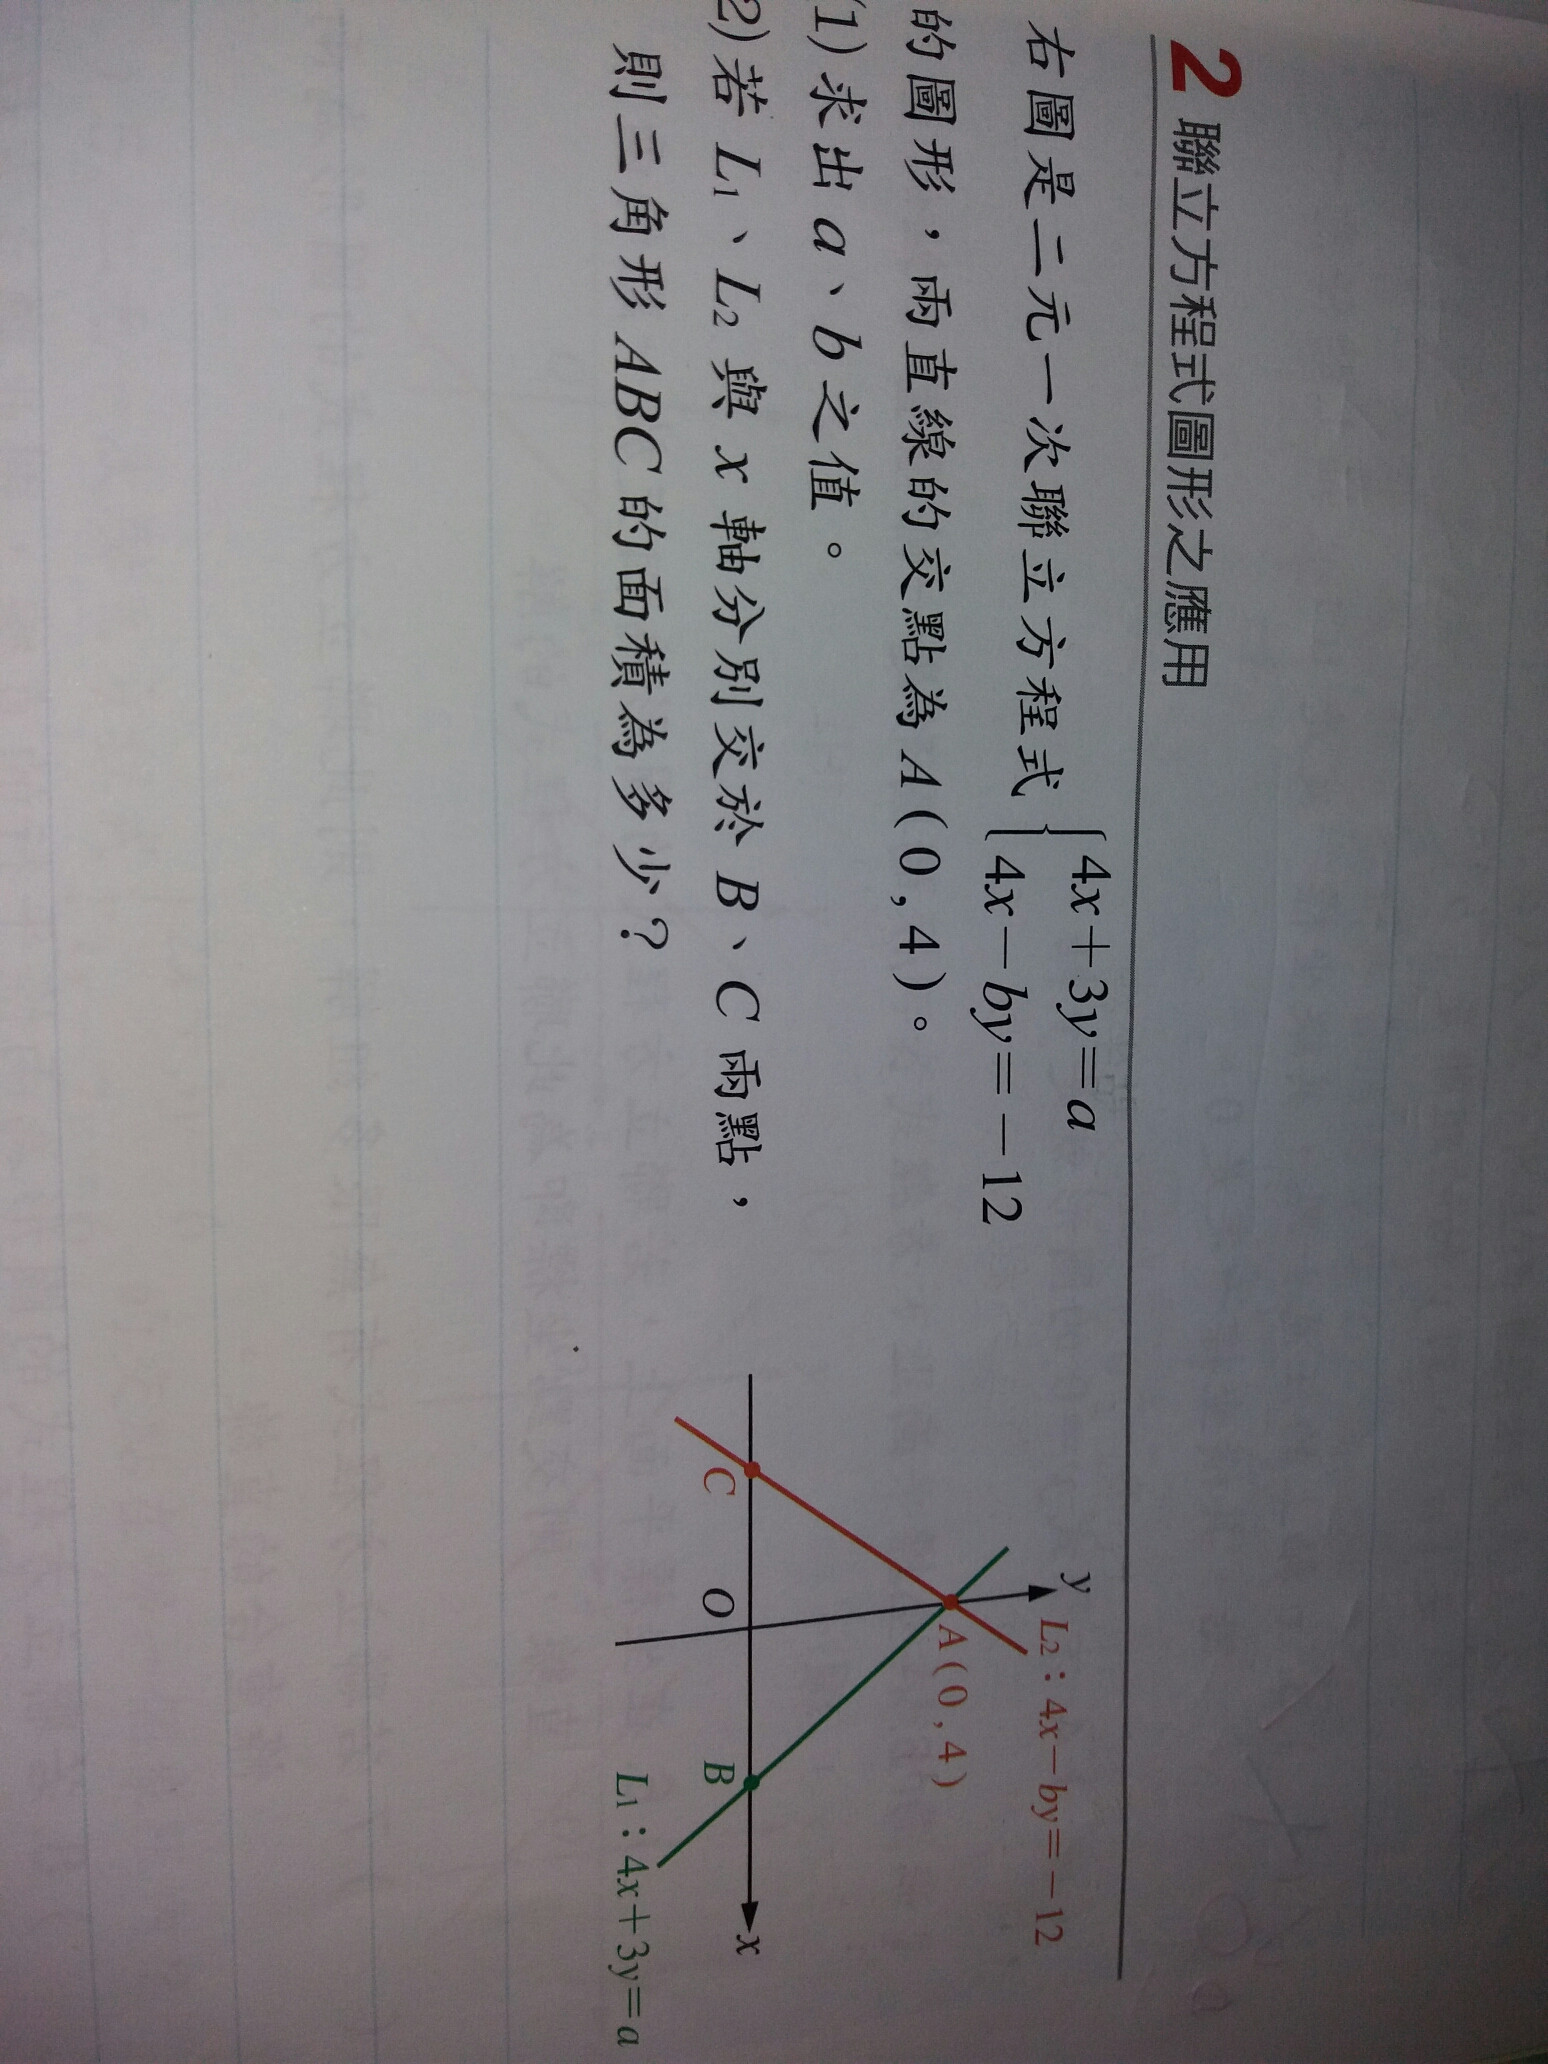 2 聯立方程式圖形之應用
右圖是二元一次聯立方程式{4x+3y=a
4x-by=-12
的圖形，兩直線的交點為A(0,4)。
(1)求出a、b之值。
2)若L₁、L₂與x軸分別交於B、C兩點，
則三角形ABC的面積為多少？
y
L₂：4x-by=-12
A(0,4)
C
O
B
x
L₁：4x+3y=a